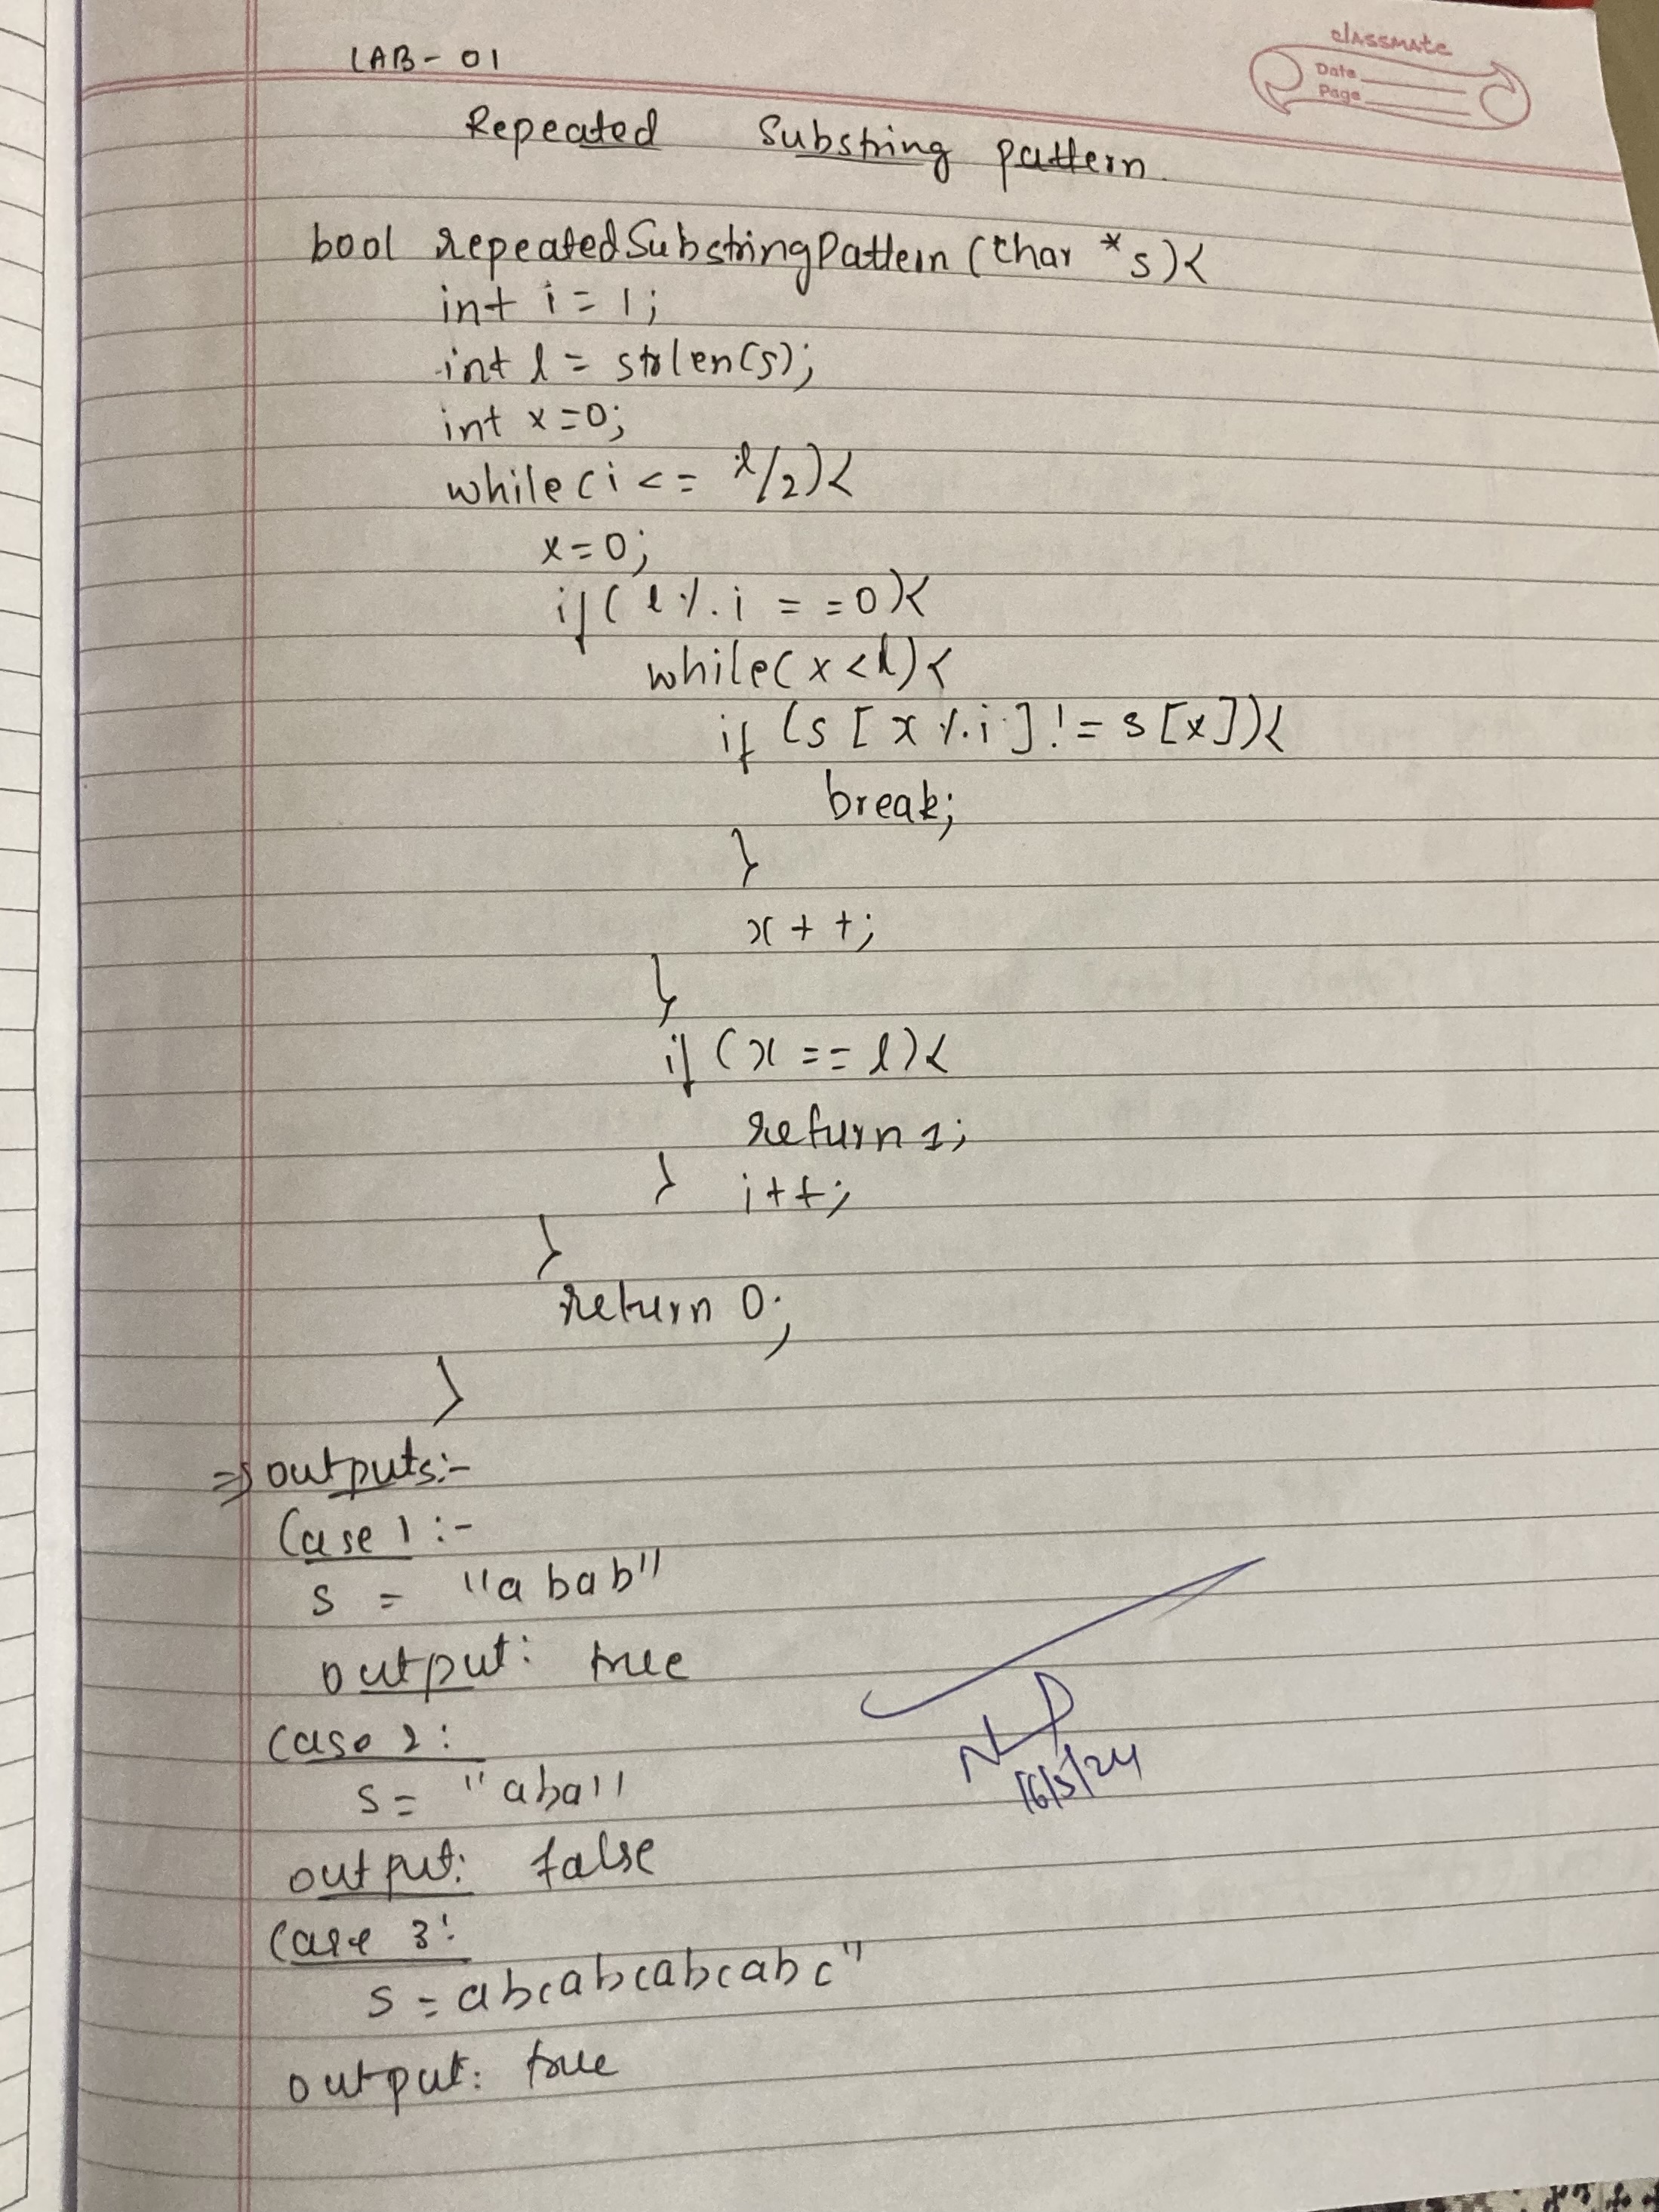 LAB - 01
classmate
Date
Page
Repeated Substring pattern.
bool repeatedSubstringPattern (char *s){
int i = 1;
int l = strlen(s);
int x=0;
while(i <= l/2){
x=0;
if( l % i = =0){
while(x<l){
if (s [ x % i ] != s [x]){
break;
}
x + +;
}
if (x == l){
return 1;
} i++;
}
return 0;
}
=> outputs:-
Case 1 :-
s = "abab"
output: true
Case 2:
s= "aba"
output: false
Case 3:
s = abcabcabcabc"
output: true
16/5/24